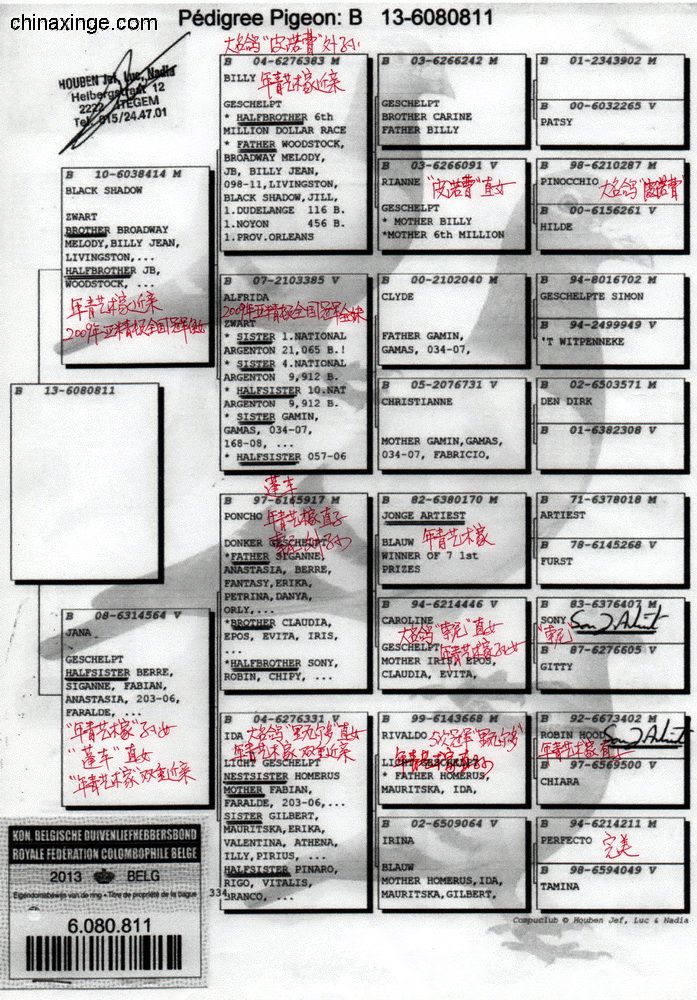 chinaxinge.com
Pédigree Pigeon: B 13-6080811
HOUBEN Jef, Luc, Nadia
Heibergstraat 12
2222 ITEGEM
Tel. 015/24.47.01
B 13-6080811
B 10-6038414 M
BLACK SHADOW
ZWART
BROTHER BROADWAY
MELODY,BILLY JEAN,
LIVINGSTON,...
HALFBROTHER JB,
WOODSTOCK, ...
年青艺术家近亲
B 08-6314564 V
JANA
GESCHELPT
HALFSISTER BERRE,
SIGANNE, FABIAN,
ANASTASIA, 203-06,
FARALDE, ...
"年青艺术家"孙女
"蓬车"直女
"年青艺术家"双重近亲
大名鸽"皮诺曹"外孙
B 04-6276383 M
BILLY 年青艺术家近亲
GESCHELPT
* HALFBROTHER 6th
MILLION DOLLAR RACE
* FATHER WOODSTOCK,
BROADWAY MELODY,
JB, BILLY JEAN,
098-11,LIVINGSTON,
BLACK SHADOW,JILL,
1.DUDELANGE 116 B.
1.NOYON 456 B.
1.PROV.ORLEANS
B 07-2103385 V
ALFRIDA
ZWART
* SISTER 1.NATIONAL
ARGENTON 21,065 B.!
* SISTER 4.NATIONAL
ARGENTON 9,912 B.
* HALFSISTER 10.NAT
ARGENTON 9,912 B.
* SISTER GAMIN,
GAMAS, 034-07,
168-08, ...
* HALFSISTER 057-06
蓬车
B 97-6165917 M
PONCHO 年青艺术家直子
DONKER GESCHELPT
*FATHER SIGANNE,
ANASTASIA, BERRE,
FANTASY,ERIKA,
PETRINA,DANYA,
ORLY,...
*BROTHER CLAUDIA,
EPOS, EVITA, IRIS,
...
*HALFBROTHER SONY,
ROBIN, CHIPY, ...
B 04-6276331 V
IDA
年青艺术家双重近亲
LICHT GESCHELPT
NESTSISTER HOMERUS
MOTHER FABIAN,
FARALDE, 203-06,...
SISTER GILBERT,
MAURITSKA,ERIKA,
VALENTINA, ATHENA,
ILLY,PIRIUS, ...
HALFSISTER PINARO,
RIGO, VITALIS,
BRANCO, ...
B 03-6266242 M
GESCHELPT
BROTHER CARINE
FATHER BILLY
B 03-6266091 V
RIANNE "皮诺曹"直女
GESCHELPT
* MOTHER BILLY
*MOTHER 6th MILLION
B 00-2102040 M
CLYDE
FATHER GAMIN,
GAMAS, 034-07,
B 05-2076731 V
CHRISTIANNE
MOTHER GAMIN,GAMAS,
034-07, FABRICIO,
B 82-6380170 M
JONGE ARTIEST
BLAUW 年青艺术家
WINNER OF 7 1st
PRIZES
B 94-6214446 V
CAROLINE
GESCHELPT
MOTHER IRIS, EPOS,
CLAUDIA, EVITA,
B 99-6143668 M
RIVALDO
LICHT GESCHELPT
* FATHER HOMERUS,
MAURITSKA, IDA,
B 02-6509064 V
IRINA
BLAUW
MOTHER HOMERUS,IDA,
MAURITSKA,GILBERT,
B 01-2343902 M
B 00-6032265 V
PATSY
B 98-6210287 M
PINOCCHIO 大名鸽"皮诺曹"
B 00-6156261 V
HILDE
B 94-8016702 M
GESCHELPTE SIMON
B 94-2499949 V
'T WITPENNEKE
B 02-6503571 M
DEN DIRK
B 01-6382308 V
B 71-6378018 M
ARTIEST
B 78-6145268 V
FURST
B 83-6376407 M
SONY
B 87-6276605 V
GITTY
B 92-6673402 M
ROBIN HOOD
B 97-6569500 V
CHIARA
B 94-6214211 M
PERFECTO 完美
B 98-6594049 V
TAMINA
Compuclub © Houben Jef, Luc & Nadia
KON. BELGISCHE DUIVENLIEFHEBBERSBOND
ROYALE FEDERATION COLOMBOPHILE BELGE
2013 BELG
Eigendomsbewijs van de ring • Titre de propriété de la bague
334
6.080.811